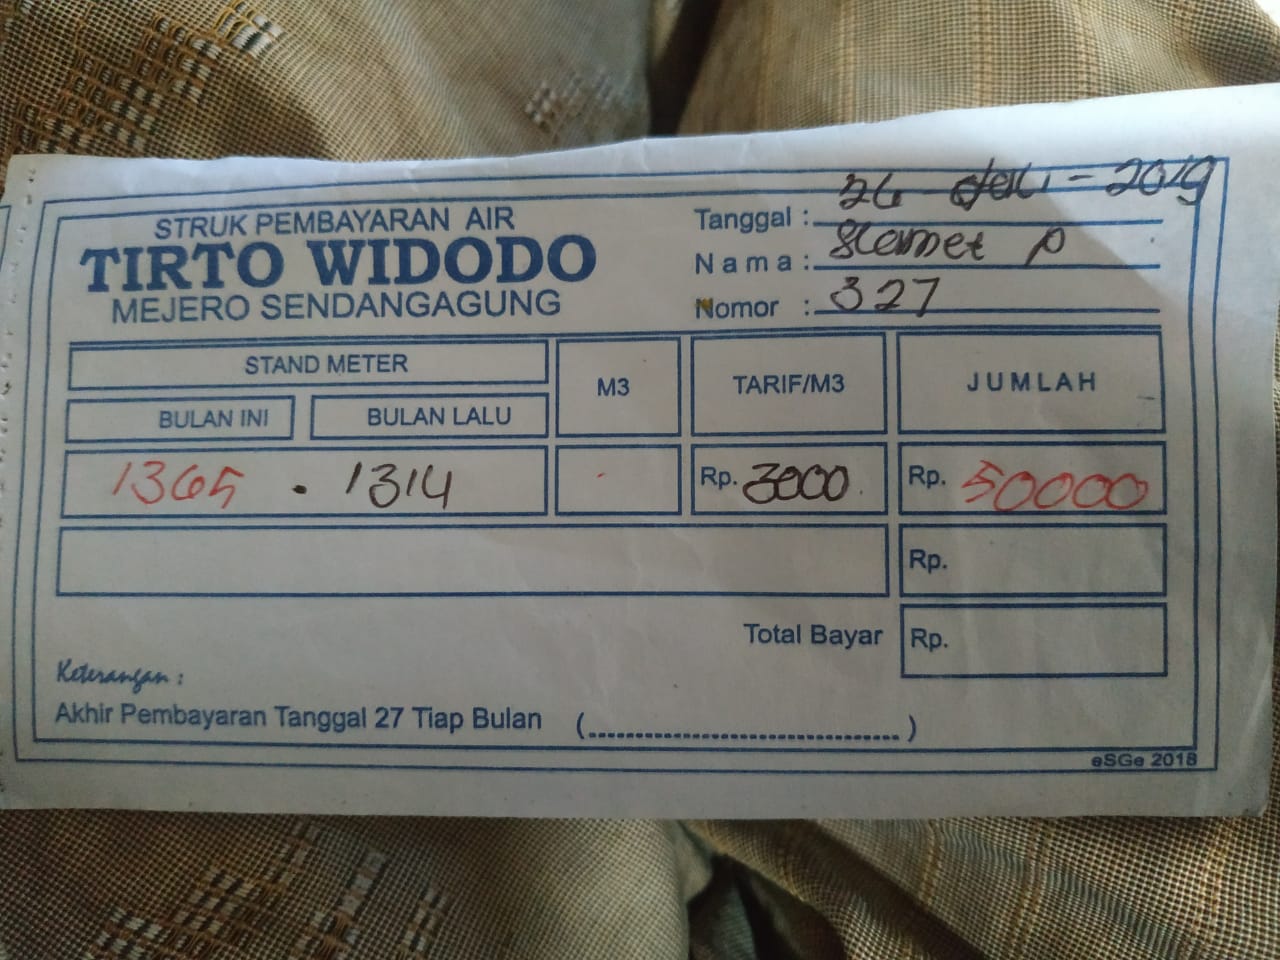 STRUK PEMBAYARAN AIR
TIRTO WIDODO
MEJERO SENDANGAGUNG
Tanggal : 26 - - 2019
Nama : Slamet P
Nomor : 327
STAND METER
BULAN INI BULAN LALU
M3
TARIF/M3
JUMLAH
1365 . 1314
Rp. 3000
Rp. 50000
Rp.
Total Bayar Rp.
Keterangan :
Akhir Pembayaran Tanggal 27 Tiap Bulan (..............................)
eSGe 2018